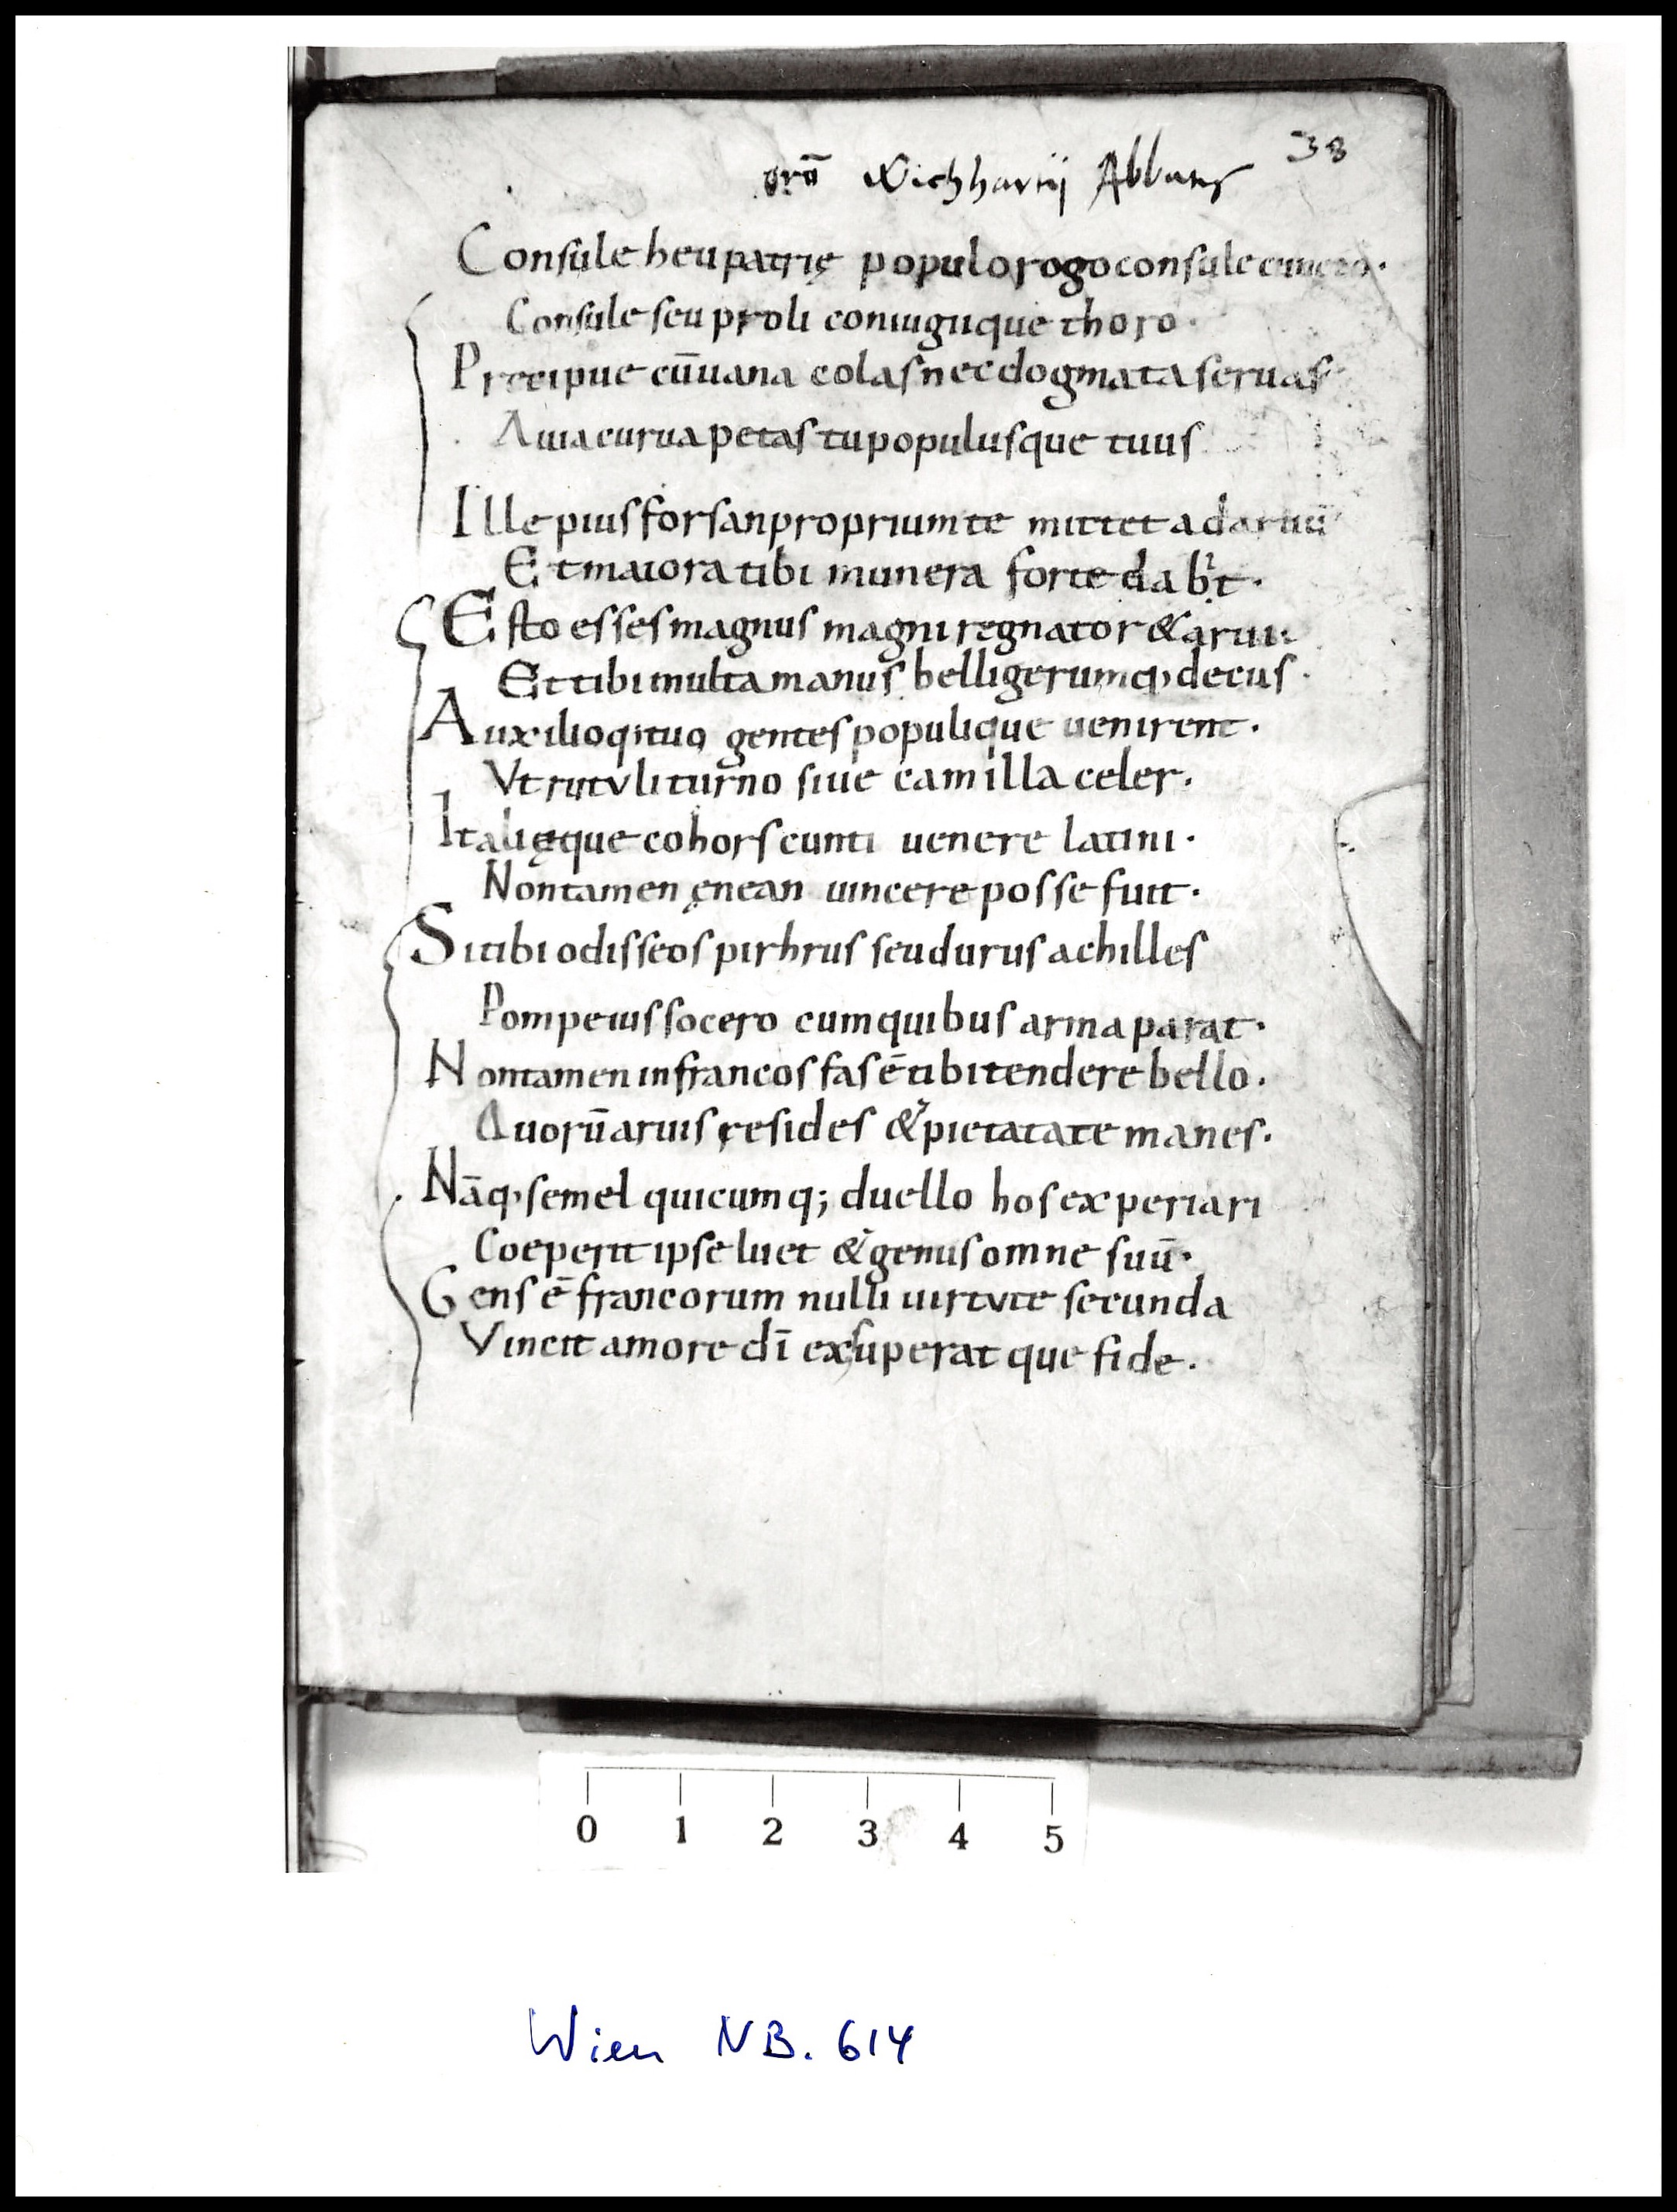 38
orō Wichharij Abbatis
Consule heu patrię populo rogo consule cuncto.
Consule seu proli coniugiique thoro.
Precipue cū uana colas nec dogmata seruas
Auia curua petas tu populusque tuus
Ille pius forsan proprium te mittet ad aruū
Et maiora tibi munera forte dabit.
Esto esses magnus magni regnator & arui.
Et tibi multa manus belligerumq, decus.
Auxilioq, tuo gentes populique uenirent.
Vt rutvli turno siue camilla celer.
Italięque cohors cunti uenere latini.
Non tamen ęnean uincere posse fuit.
Si tibi odisseos pirhrus seu durus achilles
Pompeius socero cum quibus arma parat.
Non tamen in francos fas ē tibi tendere bello.
Quorū aruis resides & pietatate manes.
Nāq, semel quicumq; duello hos experiari
Coeperit ipse luet & genus omne suū.
Gens ē francorum nulli uirtvte secunda
Vincit amore dī exsuperat que fide.
0 1 2 3 4 5
Wien NB. 614